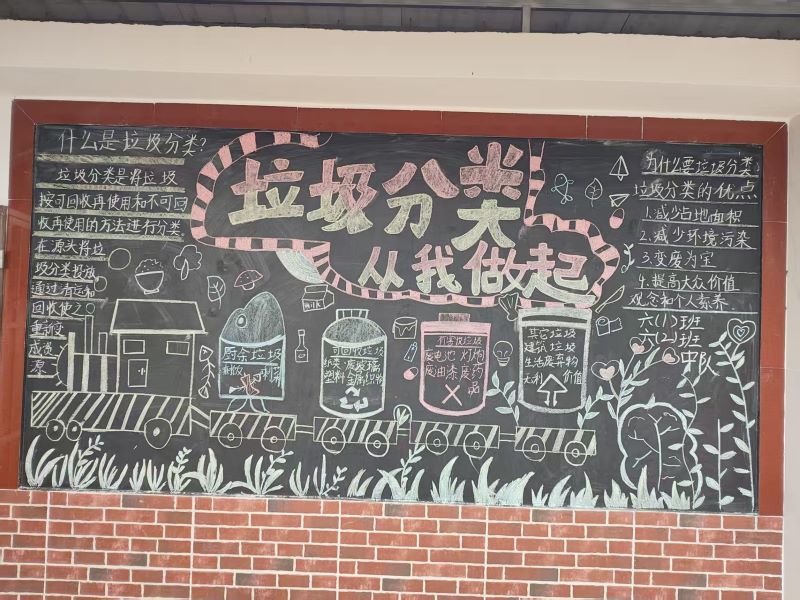 什么是垃圾分类?
垃圾分类是将垃圾
按可回收再使用和不可回
收再使用的方法进行分类
在源头将垃
圾分类投放
通过清运和
回收使之
重新变
成资
源
垃圾分类
从我做起
为什么要垃圾分类
垃圾分类的优点
1.减少占地面积
2.减少环境污染
3.变废为宝
4.提高大众价值
观念和个人素养
六(1)班
六(2)班
中队
MILK
厨余垃圾
剩饭
可回收垃圾
纸类 废玻璃
塑料 金属 织物
有害垃圾
废电池 灯泡
废油漆 废药
品
其它垃圾
建筑垃圾
生活废弃物
无利 价值